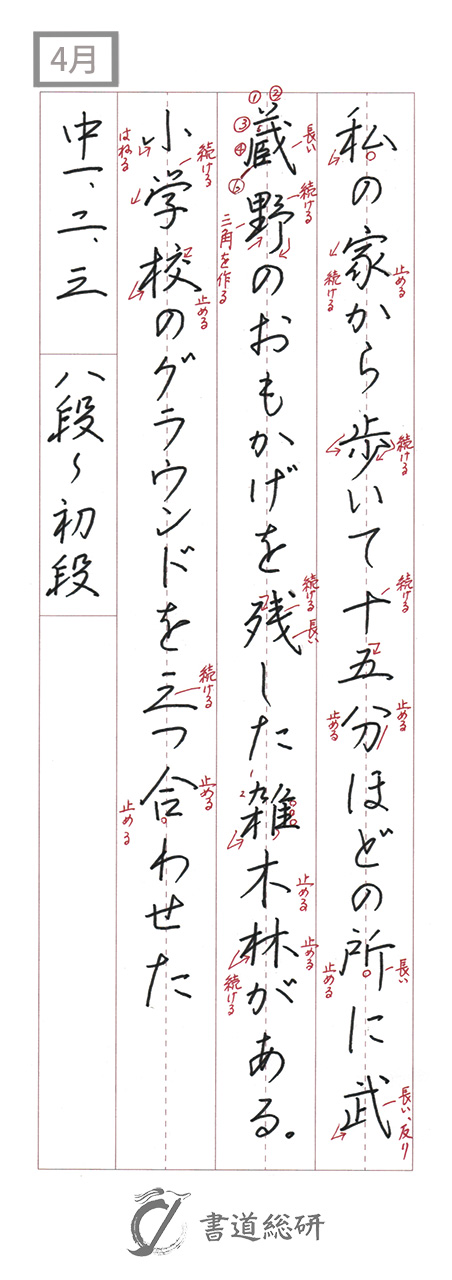 4月
私の家から歩いて十五分ほどの所に武
止める
続ける
続ける
続ける
止める
止める
長い
止める
長い、反り
蔵野のおもかげを残した雑木林がある。
① ②
③
④
長い
続ける
三角を作る
続ける
長い
止める
止める
続ける
小学校のグラウンドを三つ合わせた
はねる
続ける
止める
続ける
止める
止める
中一、二、三
八段〜初段
書道総研